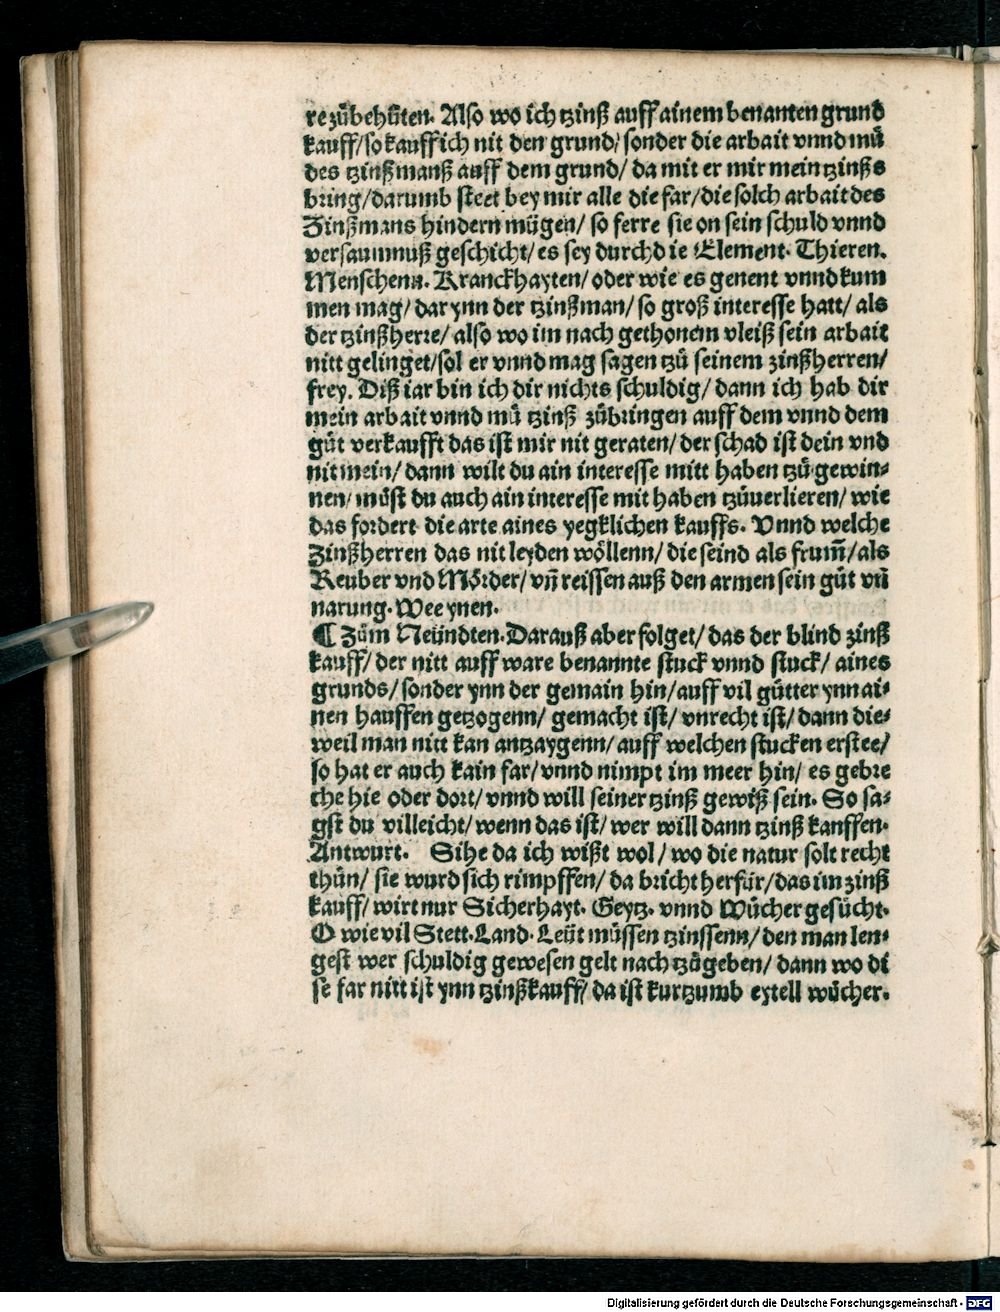 re zůbehůten. Also wo ich tzinß auff ainem benanten grund
kauff/ so kauff ich nit den grund/ sonder die arbait vnnd mů
des tzinßmanß auff dem grund/ da mit er mir mein tzinß s
bring/ darumb steet bey mir alle die far/ die solch arbait des
Zinßmans hindern mügen/ so ferre sie on sein schuld vnnd
versaumnuß geschicht/ es sey durchd ie Element. Thieren.
Menschenn. Kranckhayten/ oder wie es genent vnnd kum
men mag/ dar ynn der tzinßman/ so groß interesse hatt/ als
der tzinßherre/ also wo im nach gethonem vleiß sein arbait
nitt gelinget/ sol er vnnd mag sagen tzů seinem zinßherren/
frey. Diß iar bin ich dir nichts schuldig/ dann ich hab dir
mein arbait vnnd mů tzinß zůbringen auff dem vnnd dem
gůt verkaufft das ist mir nit geraten/ der schad ist dein vnd
nit mein/ dann wilt du ain interesse mitt haben tzů gewin⸗
nen/ můst du auch ain interesse mit haben tzůuerlieren/ wie
das fordert die arte aines yegklichen kauffs. Vnnd welche
Zinßherren das nit leyden wöllenn/ die seind als frum̃/ als
Reuber vnd Mörder/ vñ reissen auß den armen sein gůt vñ
narung. Wee ynen.
¶ Zům Neündten. Darauß aber folget/ das der blind zinß
kauff/ der nitt auff ware benannte stuck vnnd stuck/ aines
grunds/ sonder ynn der gemain hin/ auff vil gütter ynn ai⸗
nen hauffen getzogenn/ gemacht ist/ vnrecht ist/ dann die⸗
weil man nitt kan antzaygenn/ auff welchen stucken er stee/
so hat er auch kain far/ vnnd nimpt im meer hin/ es gebre
che hie oder dort/ vnnd will seiner tzinß gewiß sein. So sa⸗
gst du villeicht/ wenn das ist/ wer will dann tzinß kauffen.
Antwurt. Sihe da ich wißt wol/ wo die natur solt recht
thůn/ sie wurd sich rimpffen/ da bricht herfür/ das im zinß
kauff/ wirt nur Sicherhayt. Geytz. vnnd Wůcher gesůcht.
O wie vil Stett. Land. Leüt müssen tzinssenn/ den man len⸗
gest wer schuldig gewesen gelt nach tzůgeben/ dann wo di
se far nitt ist ynn tzinßkauff/ da ist kurtzumb eytell wůcher.
Digitalisierung gefördert durch die Deutsche Forschungsgemeinschaft - DFG